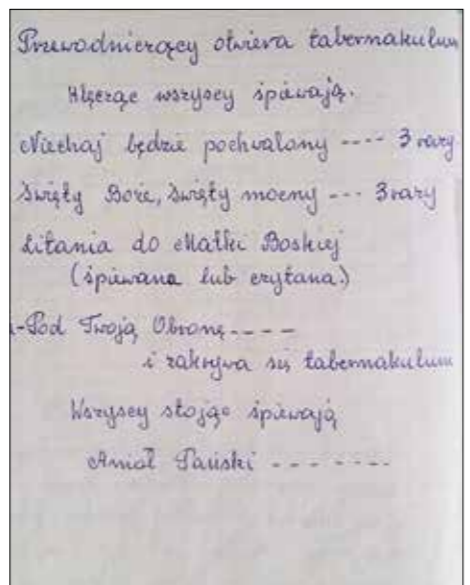 Przewodniczący otwiera tabernakulum
Klęcząc wszyscy śpiewają.
Niechaj będzie pochwalony ---- 3 razy
Święty Boże, Święty mocny --- 3 razy
Litania do Matki Boskiej
(śpiewana lub czytana.)
-Pod Twoją Obronę----
i zakrywa się tabernakulum
Wszyscy stojąc śpiewają
Anioł Pański - - - - - - -